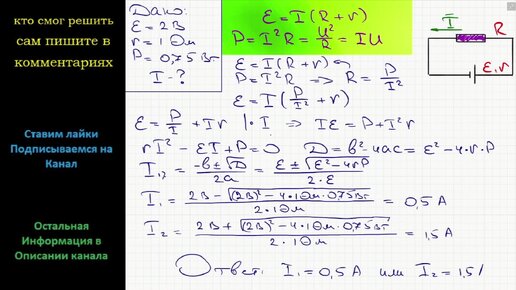 кто смог решить
сам пишите в
комментариях
Ставим лайки
Подписываемся на
Канал
Остальная
Информация в
Описании канала
Дано:
ε = 2В
r = 1 Ом
P = 0,75 Вт
I - ?
ε = I(R + r)
P = I²R = U²/R = IU
ε = I(R + r)
P = I²R ⇒ R = P/I²
ε = I(P/I² + r)
ε = P/I + Ir | · I ⇒ Iε = P + I²r
rI² - εI + P = 0 D = b² - 4ac = ε² - 4·r·P
I₁,₂ = (-b ± √D)/2a = (ε ± √(ε² - 4rP))/(2·ε)
I₁ = (2В - √((2В)² - 4·1Ом·0,75Вт))/(2·1Ом) = 0,5 А
I₂ = (2В + √((2В)² - 4·1Ом·0,75Вт))/(2·1Ом) = 1,5 А
Ответ: I₁ = 0,5 А или I₂ = 1,5 А
I
R
ε, r